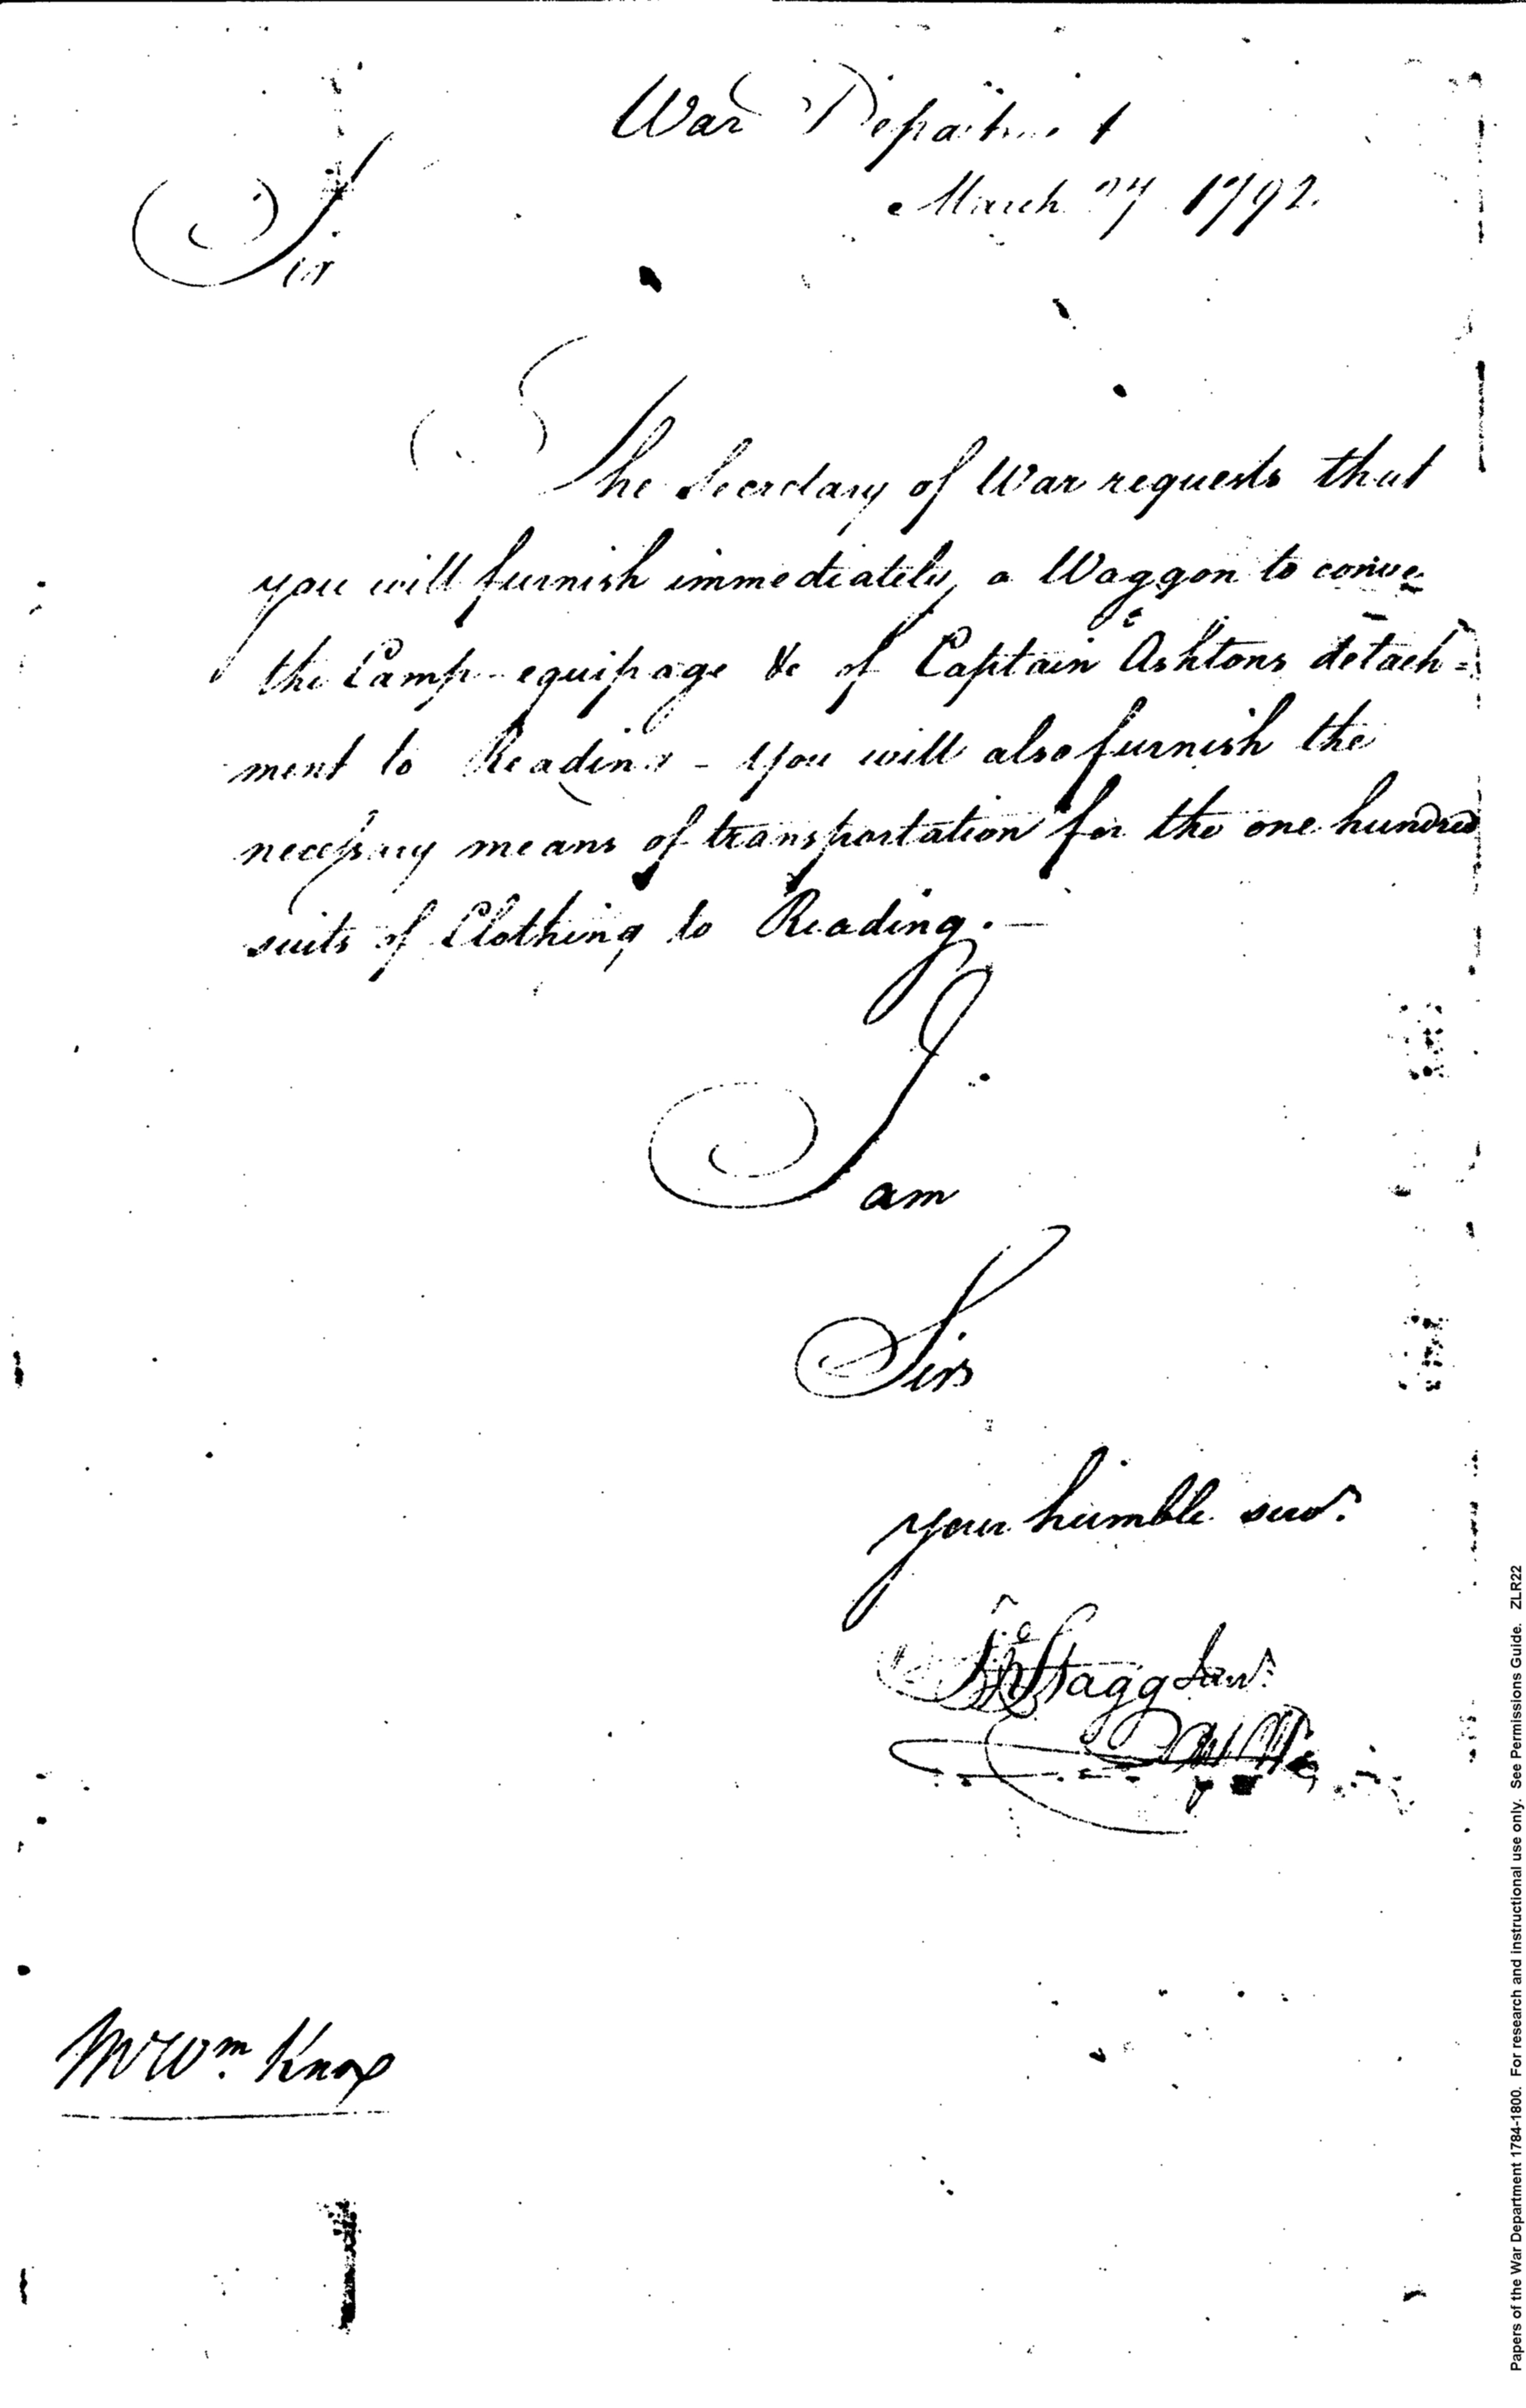 War Department
March 27 1792.
Sir
The Secretary of War requests that
you will furnish immediately, a Waggon to convey
the Camp-equipage &c of Captain Ashtons detach=
ment to Reading - You will also furnish the
necessary means of transportation for the one hundred
suits of Clothing to Reading. —
I
am
Sir
your humble servt.
Jno Stagg Junr.
Mr Wm. Knox
Papers of the War Department 1784-1800. For research and instructional use only. See Permissions Guide. ZLR22